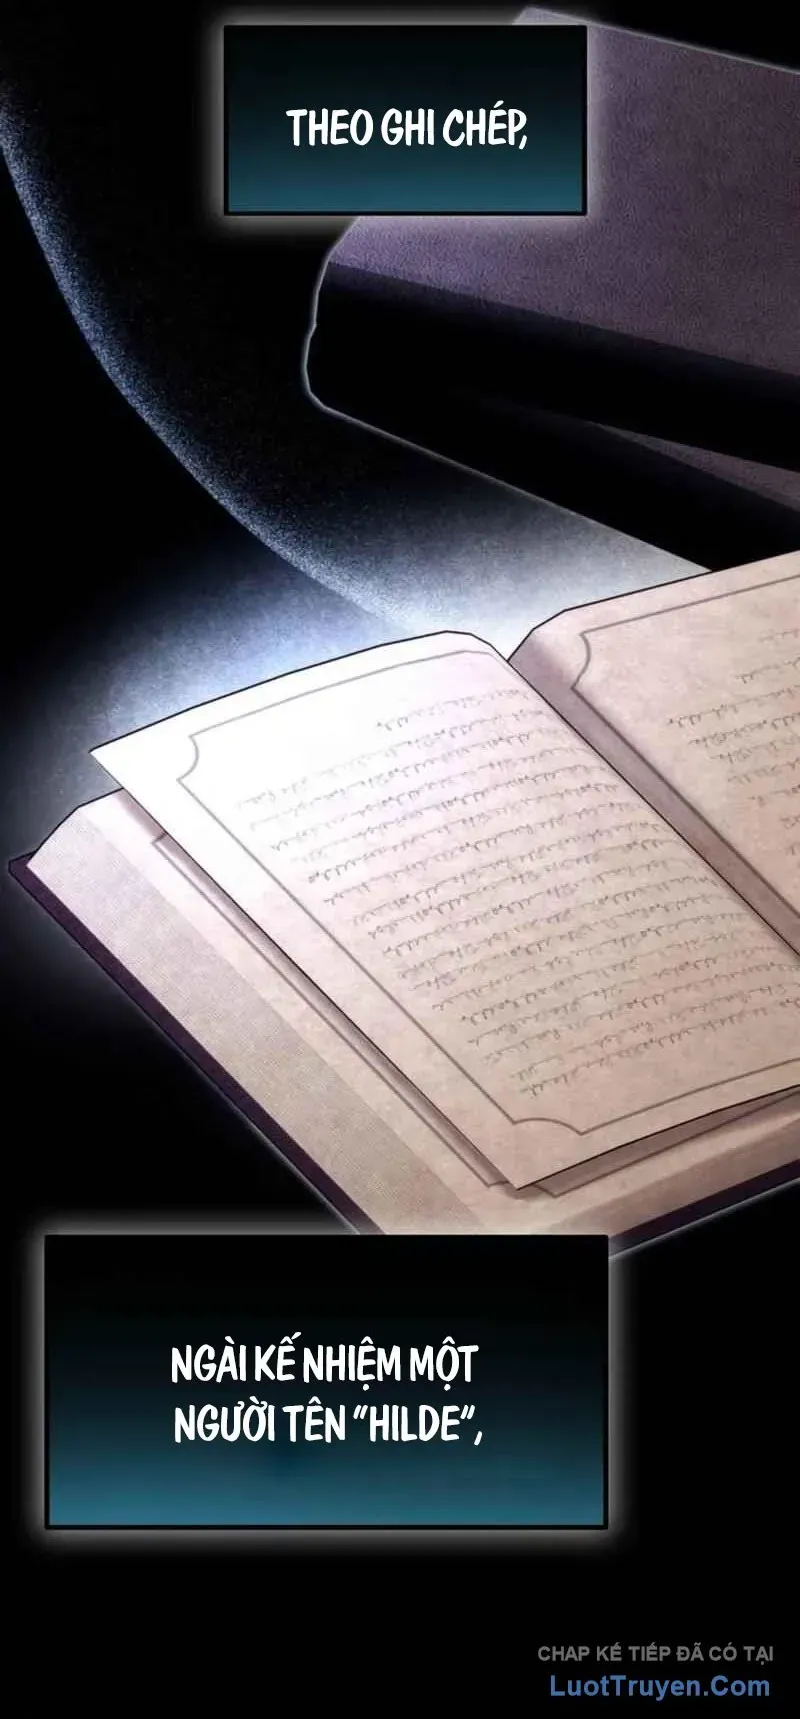 THEO GHI CHÉP,
NGÀI KẾ NHIỆM MỘT
NGƯỜI TÊN "HILDE",
CHAP KẾ TIẾP ĐÃ CÓ TẠI
LuotTruyen.Com